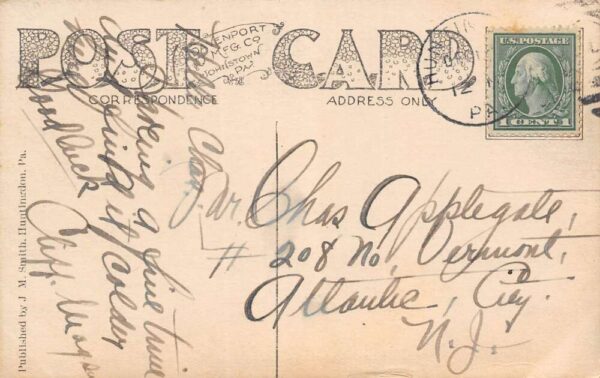 POST CARD
DAVENPORT
MFG. CO.
JOHNSTOWN
PA.
CORRESPONDENCE
ADDRESS ONLY
HUN
PA
U.S. POSTAGE
1 CENT 1
Published by J. M. Smith, Huntingdon, Pa.
Hello Chas.
Am having a fine time
it colder
Good luck
Cliff.
Mr. Chas Applegate,
# 208 No. Vermont,
Atlantic, City.
N. J.